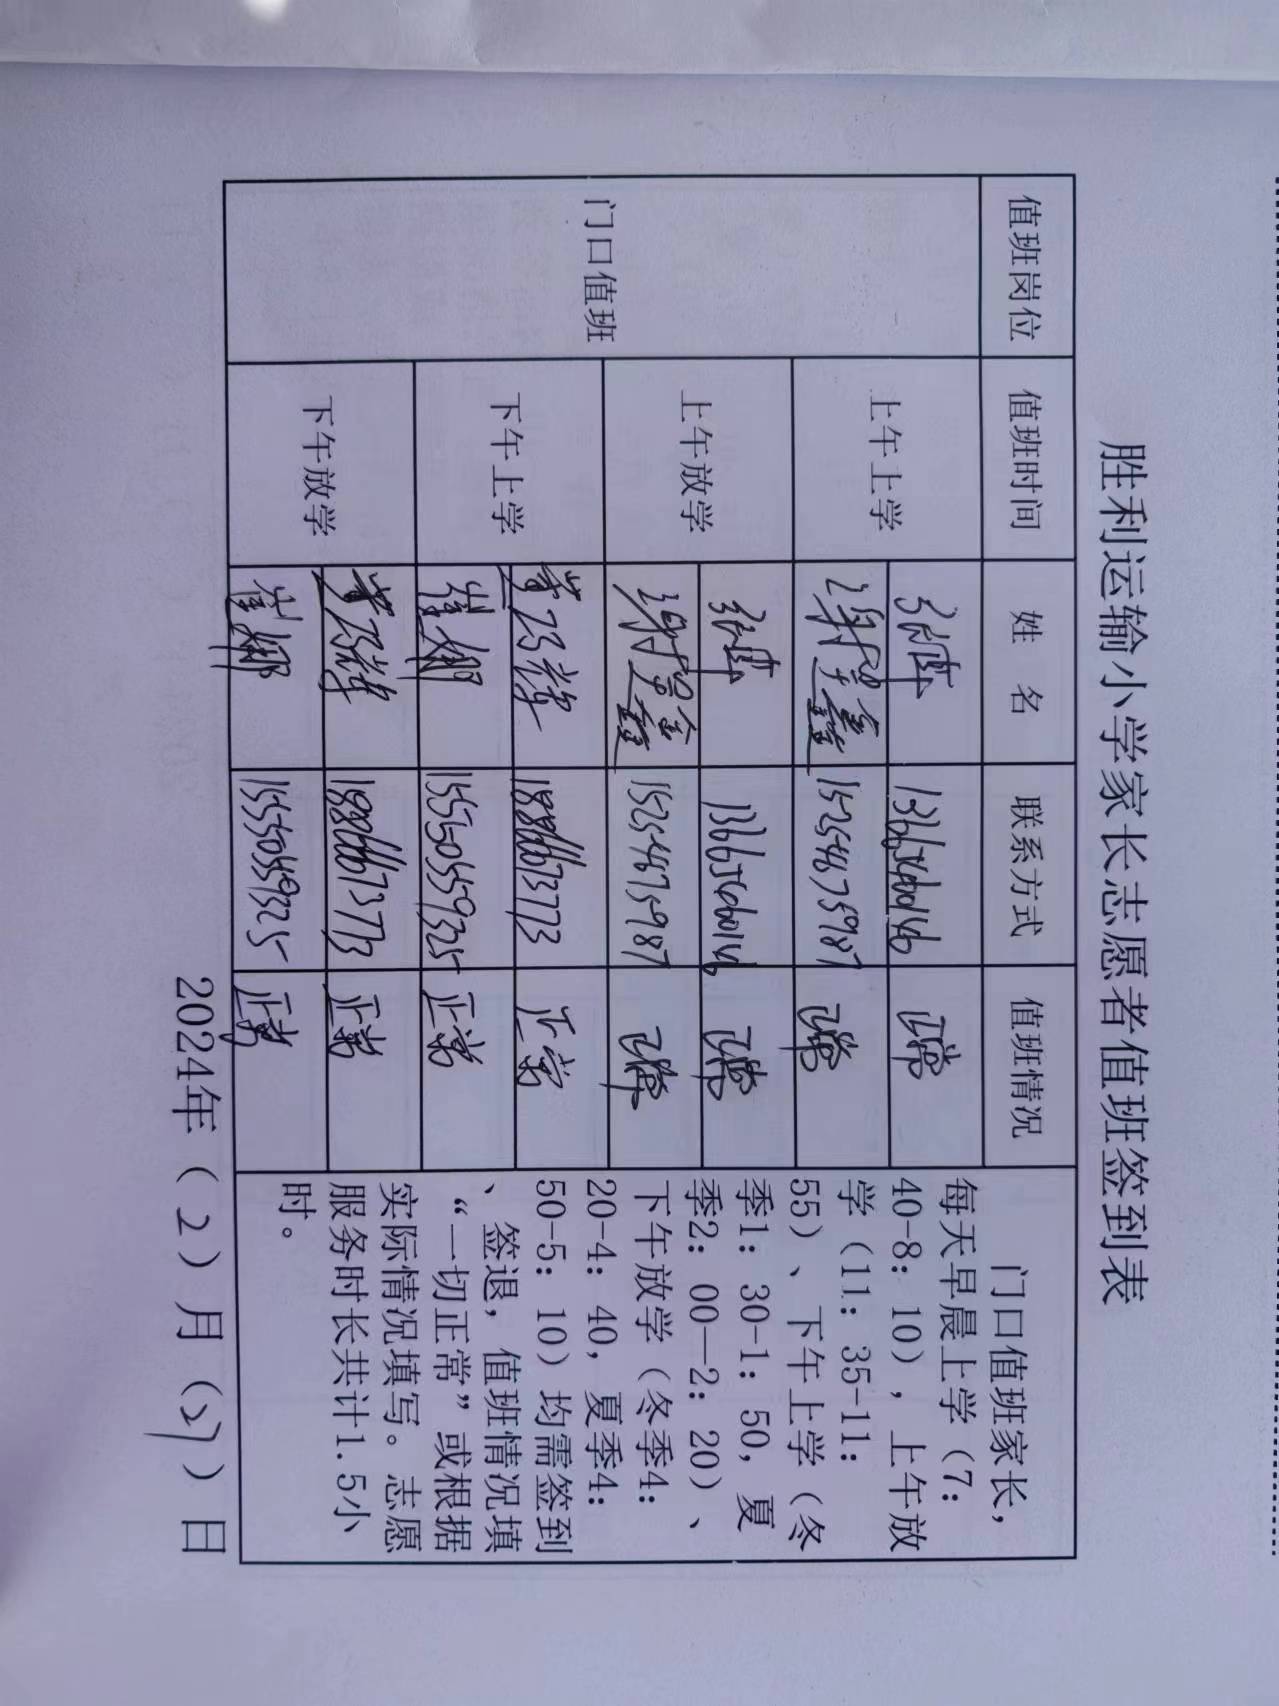 胜利运输小学家长志愿者值班签到表
值班岗位 值班时间 姓 名 联系方式 值班情况
门口值班
上午上学
张伟 13665460146 正常
15254675987 正常
上午放学
张伟 13665460146 正常
15254675987 正常
下午上学
18866673773 正常
崔娜 15550559325 正常
下午放学
18866673773 正常
崔娜 15550559325 正常
门口值班家长,
每天早晨上学（7:
40-8: 10），上午放
学（11: 35-11:
55）、下午上学（冬
季1: 30-1: 50, 夏
季2: 00—2: 20）、
下午放学（冬季4:
20-4: 40, 夏季4:
50-5: 10）均需签到
、签退, 值班情况填
“一切正常”或根据
实际情况填写。志愿
服务时长共计1.5小
时。
2024年（2）月（27）日